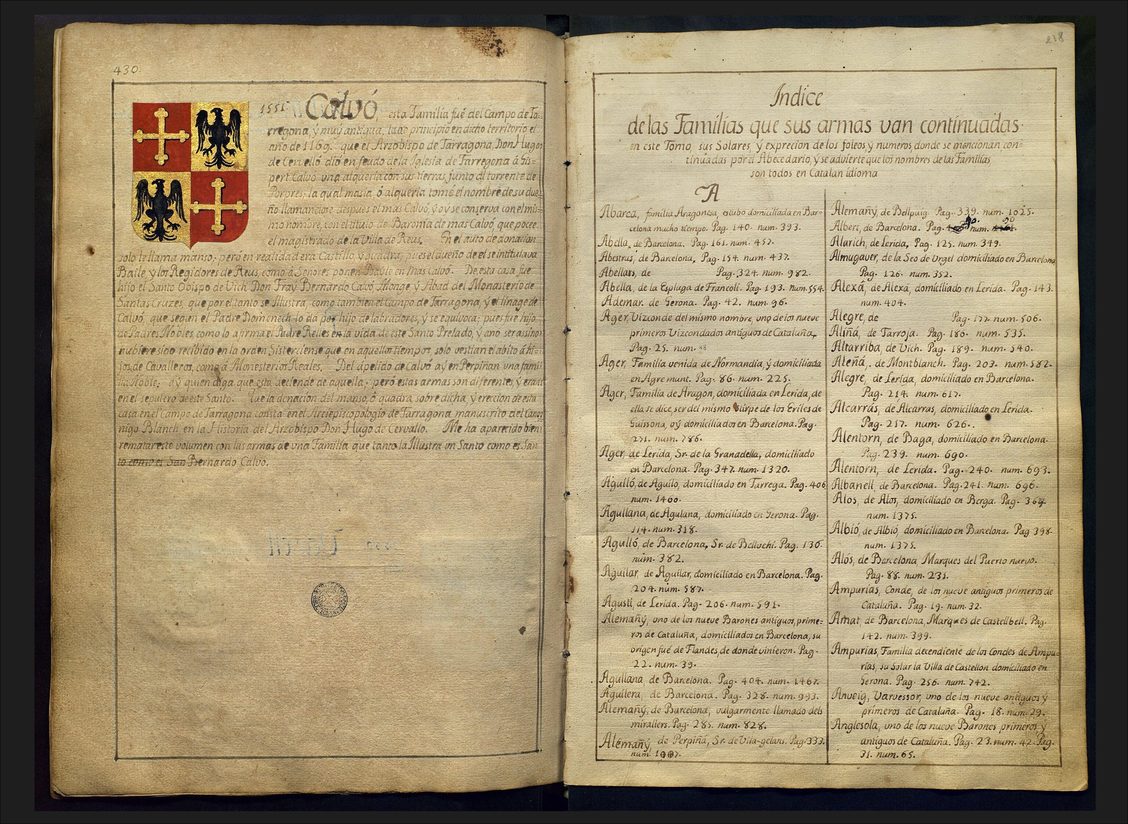 430
1551 Calvó, esta Familia fué del Campo de Ta-
rregona, y muy antigua, tuvo principio en dicho territorio el
año de 1169. que el Arzobispo de Tarragona, Don Hugo
de Cervelló dió en feudo de la Iglesia de Tarregona á Gis-
pert Calvó una alqueria con sus tierras junto al torrente de
la qual masia, ó alqueria tomó el nombre de su due-
ño llamandose despues el mas Calvó, y oy se conserva con el mis-
mo nombre, con el titulo de Baronia de mas Calvó, que poceé
el magistrado de la Villa de Reus. En el auto de donacion
solo le llama manso, pero en realidad era Castillo y Quadra, pues el dueño de el se intitulava
Baile y los Regidores de Reus, como á Señores ponen Bayle en mas Calvó. De esta casa fue
hijo el Santo Obispo de Vich Don Fray Bernardo Calvó Monge y Abad del Monasterio de
Santas Cruzes, que por el tanto se illustra, como tambien el Campo de Tarragona, y el linage de
Calvó, que segun el Padre Domenech lo da por hijo de labradores, y se equivoca; pues fue hijo
de Padres Nobles como lo afirma el Padre Relles en la vida de este Santo Prelado, y a no ser asi no
hubiere sido recibido en la orden Sisterciense que en aquellos tiempos solo vestian el abito á hi-
jos de Cavalleros, como á Monesterios Reales. Del apelido de Calvó ay en Perpiñan una fami-
lia Noble; ay quien diga que esta deciende de aquella, pero estas armas son diferentes, y estan
en el sepulcro de este Santo. Que la donacion del manso, ó quadra, sobre dicha, y erecion de esta
casa en el Campo de Tarragona consta en el Archiepiscopologio de Tarragona, manuscrito del Cano-
nigo Blanch, en la Historia del Arzobispo Don Hugo de Cervallo. Me ha aparecido bien
rematar este volumen con las armas de una Familia que tanto la Illustra un Santo como es San-
to como el San Bernardo Calvó.
218
Indice
de las Familias que sus armas van continuadas
en este Tomo, sus Solares, y exprecion de los foleos y numeros donde se mencionan con-
tinuadas por el Abecedario, y se advierte que los nombres de las Familias
son todos en Catalan idioma
A
Abarca, familia Aragonesa, estubo domiciliada en Bar-
celona mucho tiempo. Pag. 140. num. 393.
Abdla, de Barcelona. Pag. 161. num. 452.
Abestrus, de Barcelona, Pag. 154. num. 437.
Abellats, de Pag. 324. num. 982.
Abella, de la Espluga de Francoli. Pag. 193. num. 554.
Ademar, de Gerona. Pag. 42. num. 96.
Ager, Vizconde del mismo nombre, uno de los nueve
primeros Vizcondados antiguos de Cataluña,
Pag. 25. num.
Ager, Familia venida de Normandia, y domiciliada
en Agremunt. Pag. 86. num. 225.
Ager, Familia de Aragon, domiciliada en Lerida, de
ella se dice, ser del mismo stirpe de los Eriles de
Guisona, oy domiciliados en Barcelona. Pag.
271. num. 786.
Ager, de Lerida, Sr. de la Granadella, domiciliado
en Barcelona. Pag. 347. num. 1320.
Aguiló, de Aguilo, domiciliado en Tarrega. Pag. 406
num. 1460.
Agullana, de Agulana, domiciliado en Gerona. Pag.
114. num. 318.
Agulló, de Barcelona, Sr. de Bellochi. Pag. 136.
num. 382.
Aguilar, de Aguilar, domiciliado en Barcelona. Pag.
204. num. 587.
Agusti, de Lerida. Pag. 206. num. 591.
Alemañy, uno de los nueve Barones antiguos, prime-
ros de Cataluña, domiciliados en Barcelona, su
origen fué de Flandes, de donde vinieron. Pag.
22. num. 39.
Agullana, de Barcelona. Pag. 404. num. 1467.
Aguilera, de Barcelona. Pag. 328. num. 993.
Alemañy, de Barcelona, vulgarmente llamado dels
mirallers. Pag. 285. num. 828.
Alemañy, de Perpiña, Sr. de Vila-gelans. Pag. 333.
num. 1007.
Alemañy, de Bellpuig. Pag. 339. num. 1025.
Albert, de Barcelona. Pag. num.
Alarich, de Lerida, Pag. 125. num. 349.
Almugaver, de la Seo de Urgel domiciliado en Barcelona
Pag. 126. num. 352.
Alexá, de Alexá, domiciliado en Lerida. Pag. 143.
num. 404.
Alegre, de Pag. 172. num. 506.
Aliña, de Tarroja. Pag. 180. num. 535.
Altarriba, de Vich. Pag. 189. num. 540.
Aleñá, de Montblanch. Pag. 203. num. 582.
Alegre, de Lerida, domiciliado en Barcelona.
Pag. 214. num. 617.
Alcarrás, de Alcarras, domiciliado en Lerida.
Pag. 217. num. 626.
Alentorn, de Baga, domiciliado en Barcelona.
Pag. 239. num. 690.
Alentorn, de Lerida. Pag. 240. num. 693.
Albanell, de Barcelona. Pag. 241. num. 696.
Alos, de Alos, domiciliado en Berga. Pag. 364.
num. 1375.
Albió, de Albió, domiciliado en Barcelona. Pag. 398.
num. 1375.
Alós, de Barcelona, Marques del Puerto nuevo.
Pag. 88. num. 231.
Ampurias, Conde, de los nueve antiguos primeros de
Cataluña. Pag. 19. num. 32.
Amat, de Barcelona, Marques de Castellbell. Pag.
142. num. 399.
Ampurias, Familia decendiente de los Condes de Ampu-
rias, su Solar la Villa de Castellon domiciliado en
Gerona. Pag. 256. num. 742.
Anveig, Varvessor, uno de los nueve antiguos y
primeros de Cataluña. Pag. 18. num. 29.
Anglesola, uno de los nueve Barones primeros y
antiguos de Cataluña. Pag. 23. num. 42. Pag.
31. num. 65.